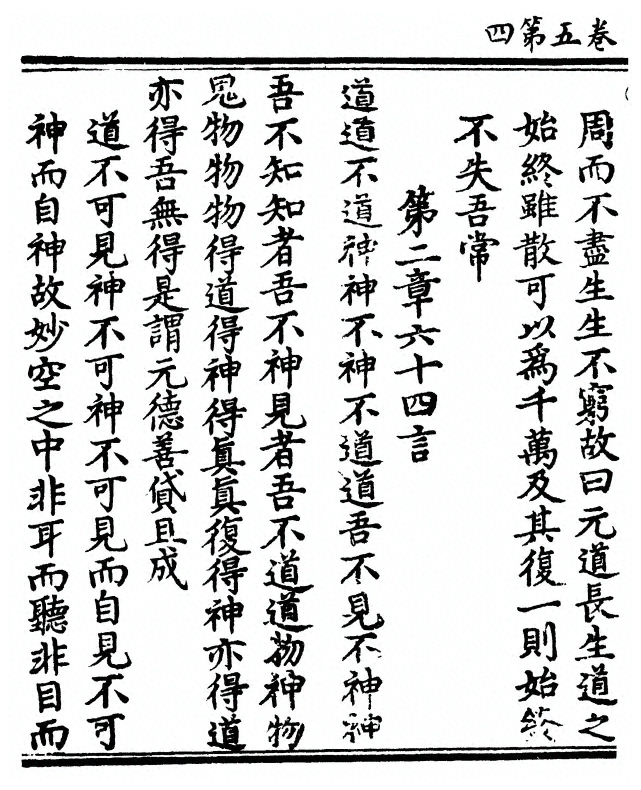 卷五第四
周而不盡生生不窮故曰元道長生道之
始終雖散可以爲千萬及其復一則始終
不失吾常
第二章六十四言
道道不道神神不神不道道吾不見不神神
吾不知知者吾不神見者吾不道道物神物
鬼物物物得道得神得眞眞復得神亦得道
亦得吾無得是謂元德善貸且成
道不可見神不可神不可見而自見不可
神而自神故妙空之中非耳而聽非目而